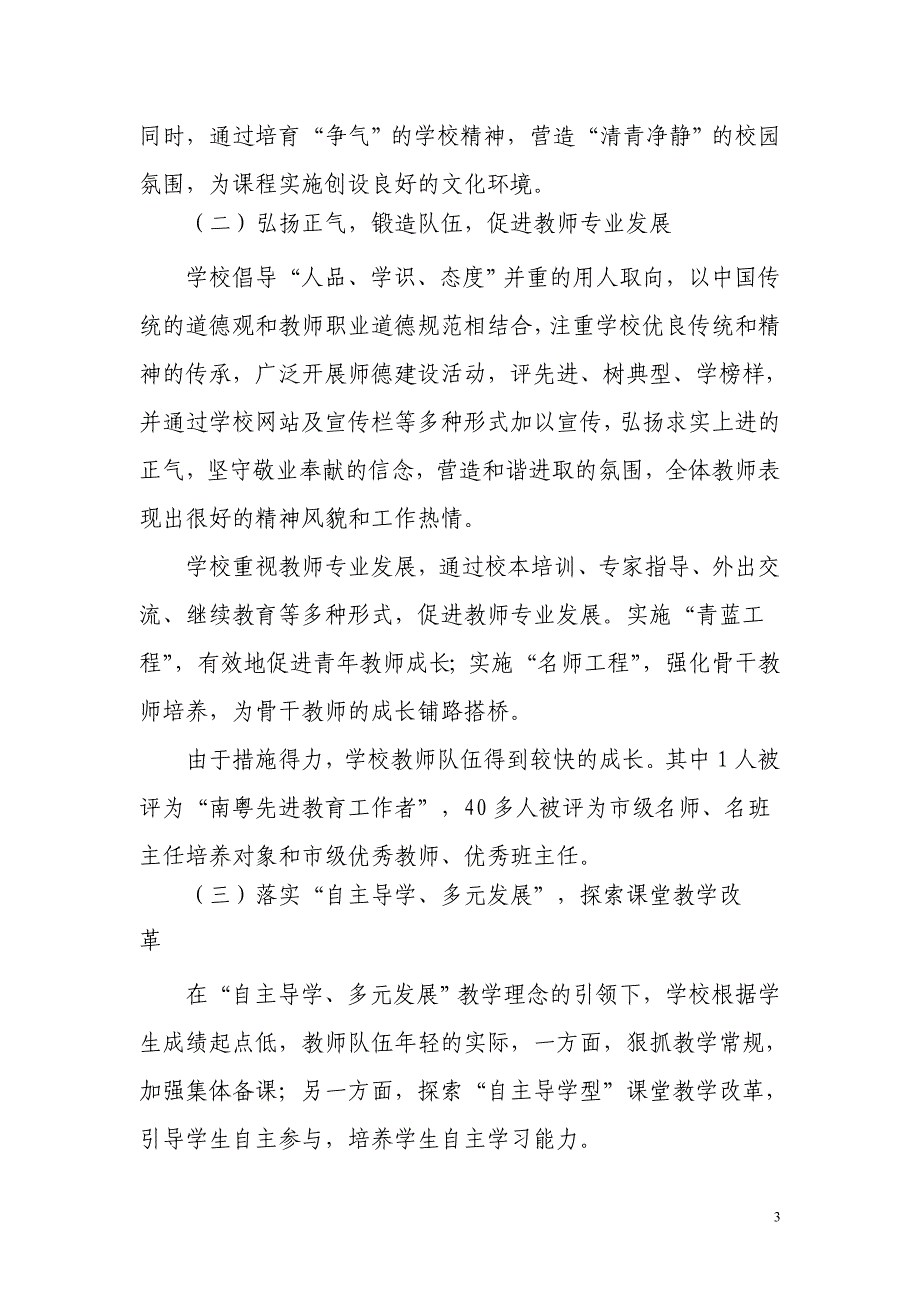 同时，通过培育“争气”的学校精神，营造“清青净静”的校园
氛围，为课程实施创设良好的文化环境。
（二）弘扬正气，锻造队伍，促进教师专业发展
学校倡导“人品、学识、态度”并重的用人取向，以中国传
统的道德观和教师职业道德规范相结合，注重学校优良传统和精
神的传承，广泛开展师德建设活动，评先进、树典型、学榜样，
并通过学校网站及宣传栏等多种形式加以宣传，弘扬求实上进的
正气，坚守敬业奉献的信念，营造和谐进取的氛围，全体教师表
现出很好的精神风貌和工作热情。
学校重视教师专业发展，通过校本培训、专家指导、外出交
流、继续教育等多种形式，促进教师专业发展。实施“青蓝工
程”，有效地促进青年教师成长；实施“名师工程”，强化骨干教
师培养，为骨干教师的成长铺路搭桥。
由于措施得力，学校教师队伍得到较快的成长。其中 1 人被
评为“南粤先进教育工作者”，40 多人被评为市级名师、名班
主任培养对象和市级优秀教师、优秀班主任。
（三）落实“自主导学、多元发展”，探索课堂教学改
革
在“自主导学、多元发展”教学理念的引领下，学校根据学
生成绩起点低，教师队伍年轻的实际，一方面，狠抓教学常规，
加强集体备课；另一方面，探索“自主导学型”课堂教学改革，
引导学生自主参与，培养学生自主学习能力。
3